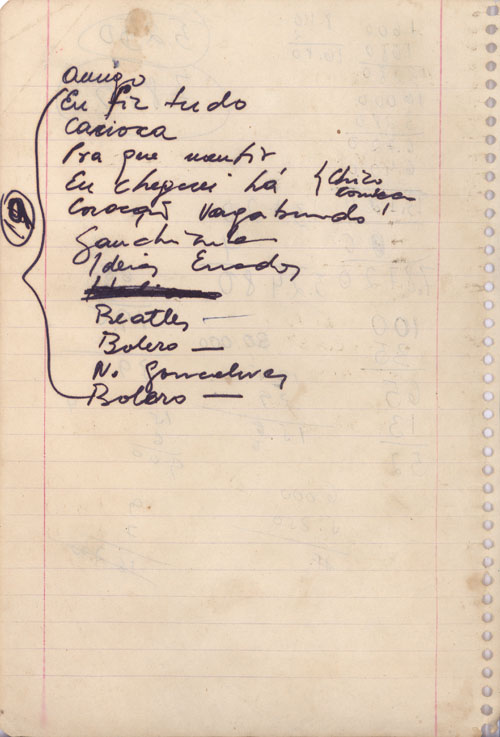 Amigo
Eu fiz tudo
Carioca
Pra que mentir
Eu cheguei lá { Chico
Coração Vagabundo!
Gauchinha
Ideias Erradas
Beatles —
Bolero —
N. Gonçalves
Bolero —